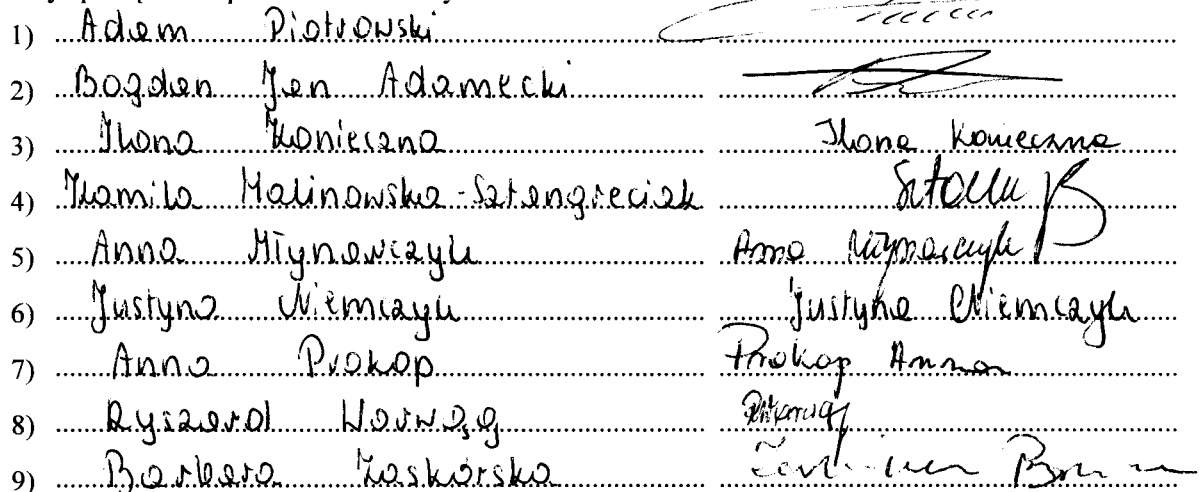 1) Adam Piotrowski
2) Bogdan Jan Adamecki
3) Ilona Konieczna Ilona Konieczna
4) Kamila Malinowska-Sztengreciak
5) Anna Młynarczyk Anna Młynarczyk
6) Justyna Niemczyk Justyna Niemczyk
7) Anna Prokop Prokop Anna
8) Ryszard Warwąg
9) Barbara Zaskórska